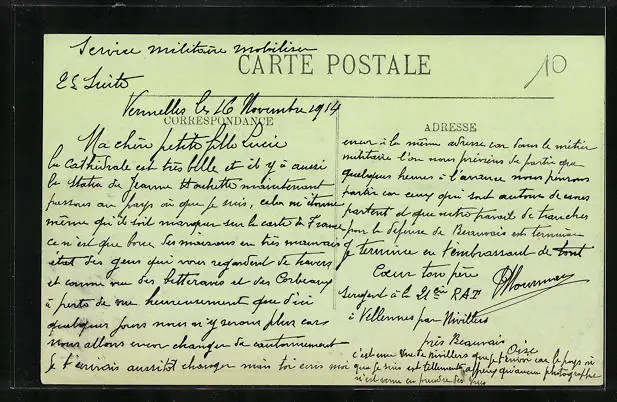 Service militaire mobiliser
CARTE POSTALE
10
2e Suite
le 16 Novembre 1914
CORRESPONDANCE
ADRESSE
Ma chère petite fille Lucie
la Cathédrale est très belle et il y à aussi
la Statue de Jeanne Hachette maintenant
passons au pays où que je suis, cela m'étonne
même qu'il soit marquer sur la carte de France
ce n'est que boue des maisons en très mauvais
état des gens qui vous regardent de travers
et comme vue des betteraves et des Corbeaux
à perte de vue heureusement que d'ici
quelques jours nous n'y serons plus car
nous allons encor changer de cantonnement
Je t'écrirais aussitôt changer mais toi écris moi
encor à la même adresse car dans le métier
militaire l'on nous préviens de partir que
quelques heures à l'avance nous pouvons
partir car ceux qui sont autour de nous
partent et que notre travail de tranchées
pour la défense de Beauvais est terminer
Je termine en t'embrassant de tout
Cœur ton père
Sergent à la 21eme
à Vellennes par Nivillers
près Beauvais
Oise
c'est une vue de Nivillers que je t'envoi car le pays où
que je suis est tellement affreux qu'aucun photographe
n'est venu en prendre des vues